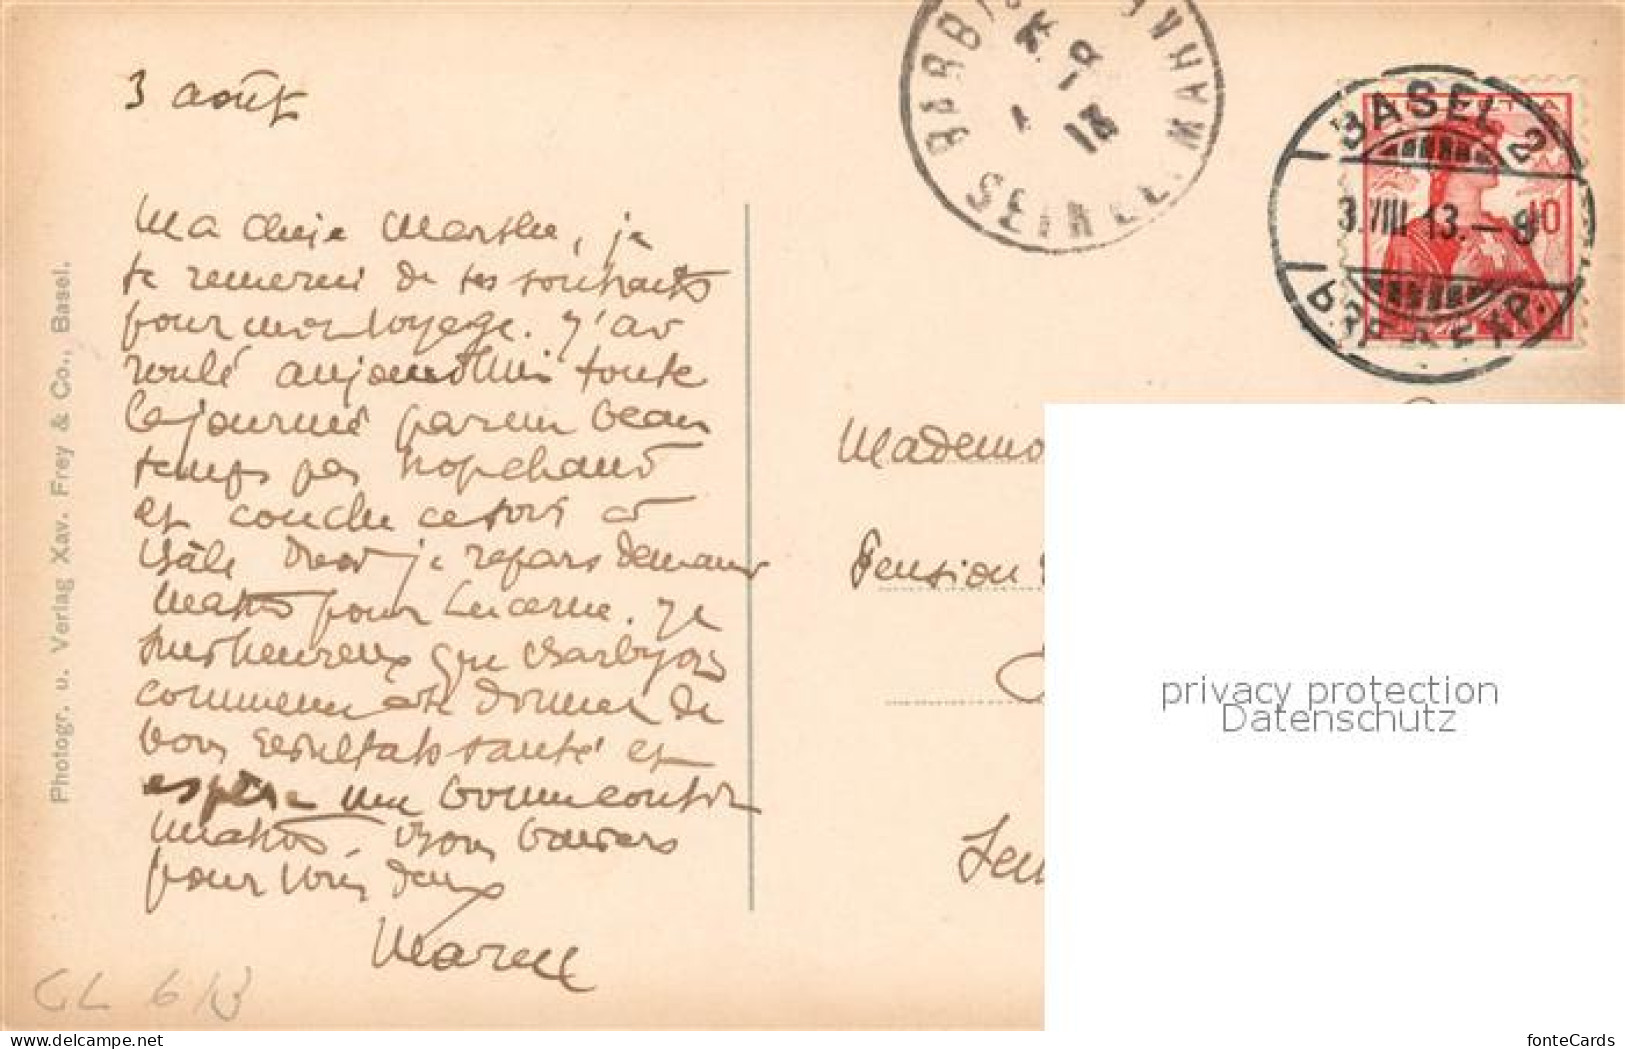 3 août
Ma chère Marthe, je
te remercie de tes souhaits
pour mon voyage. J'ai
roulé aujourd'hui toute
la journée par un beau
temps pas trop chaud
et couche ce soir à
Bâle d'où je repars demain
matin pour Lucerne. Je
suis heureux que
commence à te donner de
bons résultats santé et
espère une bonne
Bons baisers
pour vous deux
Marcel
GL 6/13
Photogr. u. Verlag Xav. Frey & Co., Basel.
SEINE
13
HELVETIA
10
BASEL 2
3.VIII.13.–9
EXP.
Mademo
Pension
privacy protection
Datenschutz
my-next-collection.com
fonteCards